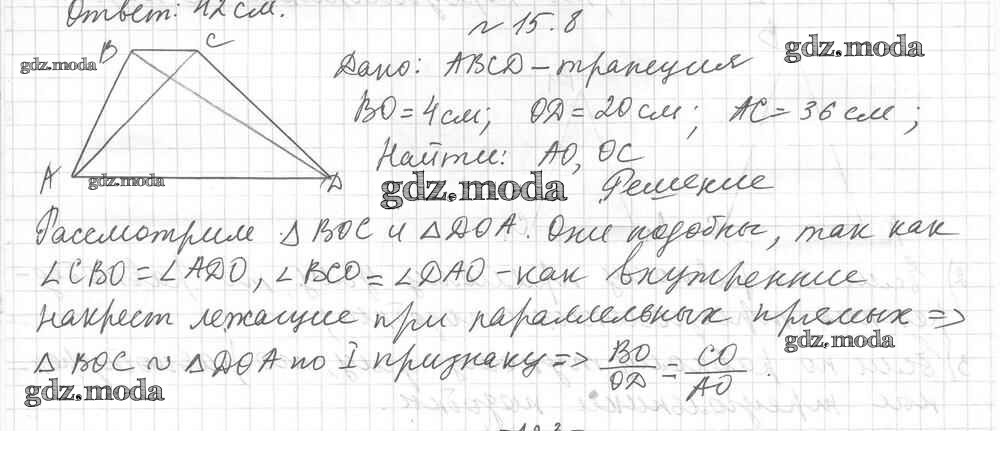 Ответ: 42 см.
№ 15.8
B C
gdz.moda
gdz.moda
Дано: ABCD – трапеция
BO = 4 см; OD = 20 см; AC = 36 см;
Найти: AO, OC
A gdz.moda D
gdz.moda
Решение
Рассмотрим △ BOC и △ DOA. Они подобны, так как
∠CBO = ∠ADO, ∠BCO = ∠DAO – как внутренние
накрест лежащие при параллельных прямых =>
gdz.moda
△ BOC ~ △ DOA по I признаку => BO/OD = CO/AO
gdz.moda